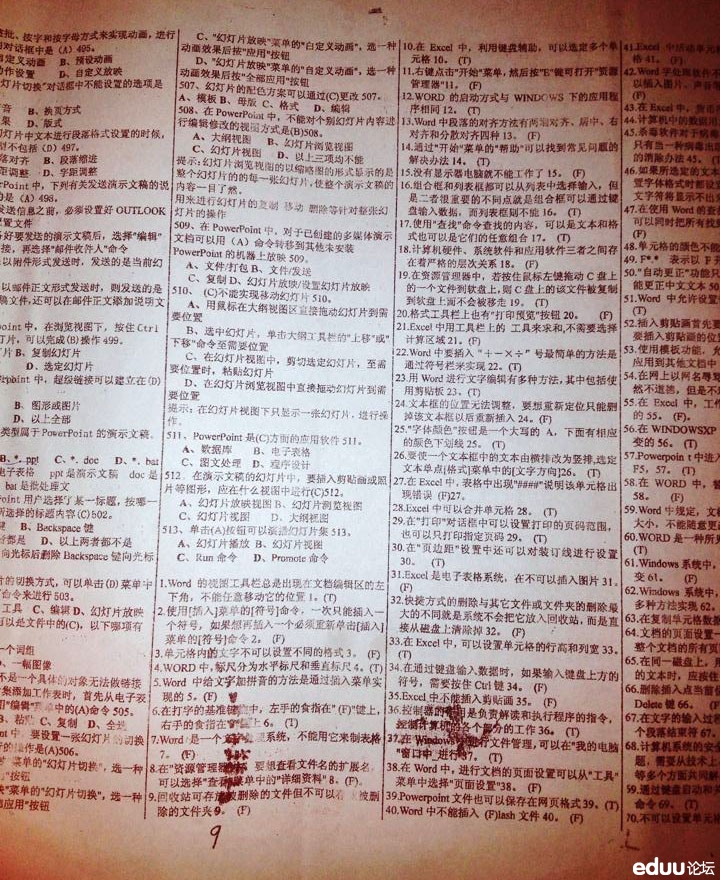 批、按字和按字母方式来实现动画，进行
对话框中是（A）495。
自定义动画 B、预设动画
动作设置 D、自定义放映
灯片切换"对话框中不能设置的选项是
音 B、换页方式
果 D、版式
灯片中文本进行段落格式设置的时候，
型不包括（D）497。
落对齐 B、段落缩进
距调整 D、字距调整
rPoint 中，下列有关发送演示文稿的说
是（A）498。
发送信息之前，必须设置好 OUTLOOK
置文件
好要发送的演示文稿后，选择"编辑"
接，再选择"邮件收件人"命令
以附件形式发送时，发送的是当前幻
以邮件正文形式发送时，则发送的是
稿文件,还可以在邮件正文添加说明文
oint 中，在浏览视图下，按住 Ctrl
灯片，可以完成(B)操作 499。
片 B、复制幻灯片
D、选定幻灯片
中，超级链接可以建立在(D)
B、图形或图片
D、以上全部
类型属于 PowerPoint 的演示文稿。
B、*.ppt C、*.doc D、*.bat
电子表格 ppt 是演示文稿 doc 是
bat 是批处理文
oint 用户选择了某一标题，按哪一
所选择的标题内容(C)502。
B、Backspace 键
D、以上两者都不是
向光标后删除 Backspace 键向光标
的切换方式，可以单击(D)菜单中
"命令来进行 503。
工具 C、编辑 D、幻灯片放映
以是文件中的(C)，以下哪项有
一个词组
一幅图像
不是一个具体的对象无法做链接
集添加工作表时，首先从电子表
"编辑"菜单中的(A)命令 505。
B、粘贴 C、复制 D、全选
中，要设置一张幻灯片的切换
操作是(A)506。
菜单的"幻灯片切换"，选一种
"按钮
"菜单的"幻灯片切换"，选一种
应用"按钮
C、"幻灯片放映"菜单的"自定义动画"，选一种
动画效果后按"应用"按钮
D、"幻灯片放映"菜单的"自定义动画"，选一种
动画效果后按"全部应用"按钮
507、幻灯片的配色方案可以通过(C)更改 507。
A、模板 B、母版 C、格式 D、编辑
508、在 PowerPoint 中，不能对个别幻灯片内容进
行编辑修改的视图方式是(B)508。
A、大纲视图 B、幻灯片浏览视图
C、幻灯片视图 D、以上三项均不能
提示：幻灯片浏览视图的以缩略图的形式显示的是
整个幻灯片的的每一张幻灯片,使整个演示文稿的
内容一目了然。
用来进行幻灯片的复制 移动 删除等针对整张幻
灯片的操作
509、在 PowerPoint 中，对于已创建的多媒体演示
文档可以用（A）命令转移到其他未安装
PowerPoint 的机器上放映 509。
A、文件/打包 B、文件/发送
C、复制 D、幻灯片放映/设置幻灯片放映
510、(C)不能实现移动幻灯片 510。
A、用鼠标在大纲视图区直接拖动幻灯片到需
要位置
B、选中幻灯片，单击大纲工具栏的"上移"或"
下移"命令至需要位置
C、在幻灯片视图中，剪切选定幻灯片，至需
要位置时，粘贴幻灯片
D、在幻灯片浏览视图中直接拖动幻灯片到需
要位置
提示：在幻灯片视图下只显示一张幻灯片，进行操
作。
511、PowerPoint 是(C)方面的应用软件 511。
A、数据库 B、电子表格
C、图文处理 D、程序设计
512、在演示文稿的幻灯片中，要插入剪贴画或照
片等图形，应在什么视图中进行(C)512。
A、幻灯片放映视图 B、幻灯片浏览视图
C、幻灯片视图 D、大纲视图
513、单击(A)按钮可以演播幻灯片集 513。
A、幻灯片播放 B、幻灯片视图
C、Run 命令 D、Promote 命令
1.Word 的视图工具栏总是出现在文档编辑区的左
下角，不能任意移动它的位置 1。(F)
2.使用[插入]菜单的[符号]命令，一次只能插入一
个符号，如果想再插入一个必须重新单击[插入]
菜单的[符号]命令 2。(F)
3.单元格内的文字不可以设置不同的格式 3。(F)
4.WORD 中,标尺分为水平标尺和垂直标尺 4。(T)
5.Word 中给文字加拼音的方法是通过插入菜单实
现的 5。(F)
6.在打字的基准键中，左手的食指在"(F)"键上，
右手的食指在上 6。(T)
7.Word 是一个文字处理系统，不能用它来制表格
7。(F)
8.在"资源管理器中，要想查看文件名的扩展名，
可以选择"查看"菜单中的"详细资料" 8。(F)。
9.回收站可存放被删除的文件但不可以存放被删
除的文件夹 9。(F)
10.在 Excel 中，利用键盘辅助，可以选定多个单
元格 10。(T)
11.右键点击"开始"菜单，然后按"E"键可打开"资源
管理器"11。(F)
12.WORD 的启动方式与 WINDOWS 下的应用程
序相同 12。(T)
13.Word 中段落的对齐方法有两端对齐、居中、右
对齐和分散对齐四种 13。(F)
14.通过"开始"菜单的"帮助"可以找到常见问题的
解决办法 14。(T)
15.没有显示器电脑就不能工作了 15。(F)
16.组合框和列表框都可以从列表中选择输入，但
是二者很重要的不同点就是组合框可以通过键
盘输入数据，而列表框则不能 16。(T)
17.使用"查找"命令查找的内容，可以是文本和格
式也可以是它们的任意组合 17。(T)
18.计算机硬件、系统软件和应用软件三者之间存
在着严格的层次关系 18。(F)
19.在资源管理器中，若按住鼠标左键拖动 C 盘上
的一个文件到软盘上,则 C 盘上的该文件被复制
到软盘上而不会被移走 19。(T)
20.格式工具栏上也有"打印预览"按钮 20。(F)
21.Excel 中用工具栏上的 工具来求和,不需要选择
计算区域 21。(F)
22.Word 中要插入"＋－×÷"号最简单的方法是
通过符号栏来实现 22。(T)
23.用 Word 进行文字编辑有多种方法，其中包括使
用剪贴板 23。(T)
24.文本框的位置无法调整，要想重新定位只能删
掉该文本框以后重新插入 24。(F)
25."字体颜色"按钮是一个大写的 A，下面有相应
的颜色下划线 25。(T)
26.要使一个文本框中的文本由横排改为竖排,选定
文本单点[格式]菜单中的[文字方向]26。(T)
27.在 Excel 中，表格中出现"####"说明该单元格出
现错误 (F)27。
28.Excel 中可以合并单元格 28。(T)
29.在"打印"对话框中可以设置打印的页码范围，
也可以只打印指定页码 29。(T)
30.在"页边距"设置中还可以对装订线进行设置
30。(T)
31.Excel 是电子表格系统，在不可以插入图片 31。
(F)
32.快捷方式的删除与其它文件或文件夹的删除最
大的不同就是系统不会把它放入回收站，而是直
接从磁盘上清除掉 32。(F)
33.在 Excel 中，可以设置单元格的行高和列宽 33。
(T)
34.在通过键盘输入数据时，如果输入键盘上方的
符号，需要按住 Ctrl 键 34。(F)
35.Excel 中不能插入剪贴画 35。(F)
36.控制器的作用是负责解读和执行程序的指令，
控制计算机的各个部分的工作 36。(T)
37.在 Windows 中进行文件管理，可以在"我的电脑
"窗口中进行 37。(T)
38.在 Word 中，进行文档的页面设置可以从"工具"
菜单中选择"页面设置"38。(F)
39.Powerpoint 文件也可以保存在网页格式 39。(T)
40.Word 中不能插入 (F)lash 文件 40。(F)
41.Excel 中活动单元
格 41。(F)
42.Word 字处理软件不
以插入图片、声音等
(F)
43.在 Excel 中，
44.计算机中的数据用
45.杀毒软件对于病毒
只有当一种病毒出
的消除办法 45。(T)
46.如果所选定的文本
置字体格式时都设
文字符将显示不出
47.在使用 Word 的查
可以同时把所有找
(F)
48.单元格的颜色不能
49.F*.* 表示以 F 开
50."自动更正"功能只
能更正中文文本 50
51.Word 中允许设置
(T)
52.插入剪贴画首先要
要插入剪贴画的位
53.使用模板功能，
应用到其他文档中
54.在网上以网名辱骂
然不道德，但是不
55.在 Excel 中，工作
的 55。(F)
56.在 WINDOWSXP
变的 56。(T)
57.Powerpoint 中进入
F5，57。(T)
58.在 WORD 中，
58。(F)
59.Word 中规定，文
大小，不能随意更
60.WORD 是一种所见
(T)
61.Windows 系统中，
变 61。(F)
62.Windows 系统中，
多种方法实现 62。
63.在复制单元格数据
64.文档的页面设置一
整个文档的所有页
65.在同一磁盘上，
的文本时，应按住
66.删除插入点当前
Delete 键 66。(F)
67.在文字的输入过
个段落结束符 67。
68.计算机系统的安全
题，需要从技术上
等多个方面共同解
69.通过键盘启动和关
命令 69。(T)
70.不可以设置单元格
9
eduu论坛